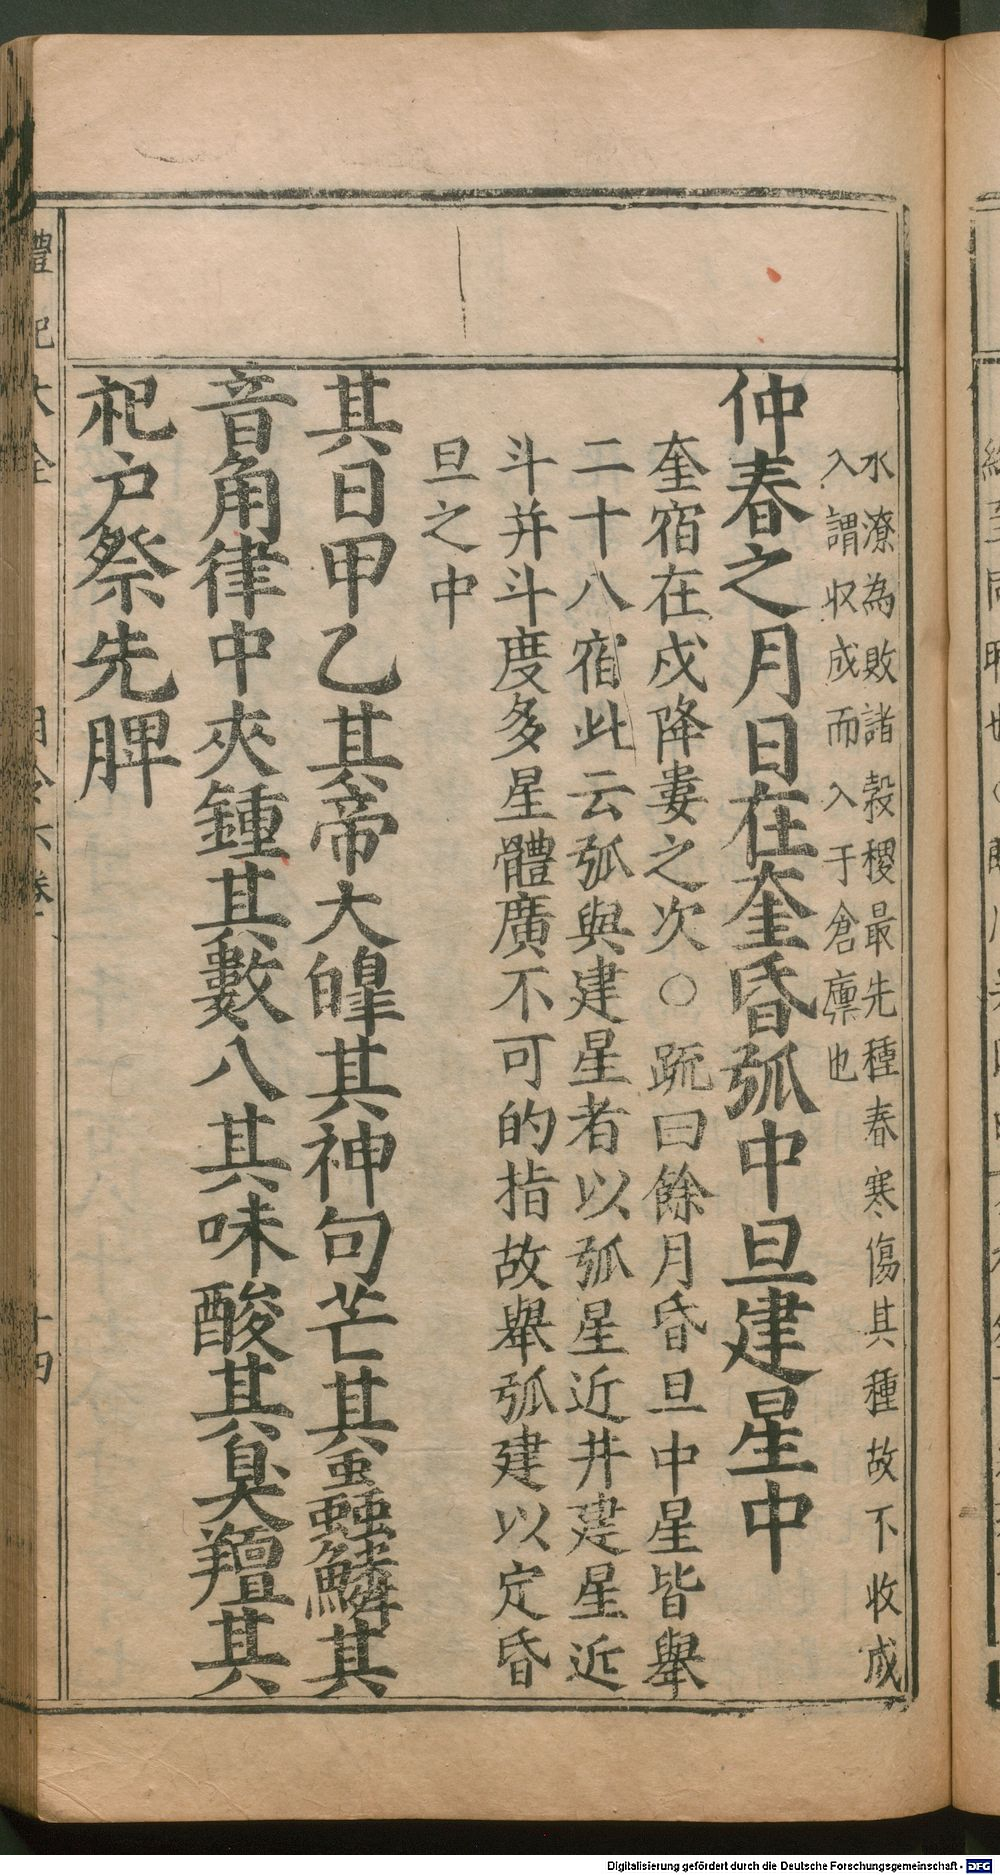 水潦為敗諸穀稷最先種春寒傷其種故不收成
入謂收成而入于倉廩也
仲春之月日在奎昏弧中旦建星中
奎宿在戌降婁之次○䟽曰餘月昏旦中星皆舉
二十八宿此云弧與建星者以弧星近井建星近
斗井斗度多星體廣不可的指故舉弧建以定昏
旦之中
其日甲乙其帝大皥其神句芒其蟲鱗其
音角律中夾鍾其數八其味酸其臭羶其
祀户祭先脾
禮記大全 月令六卷 十四
Digitalisierung gefördert durch die Deutsche Forschungsgemeinschaft - DFG